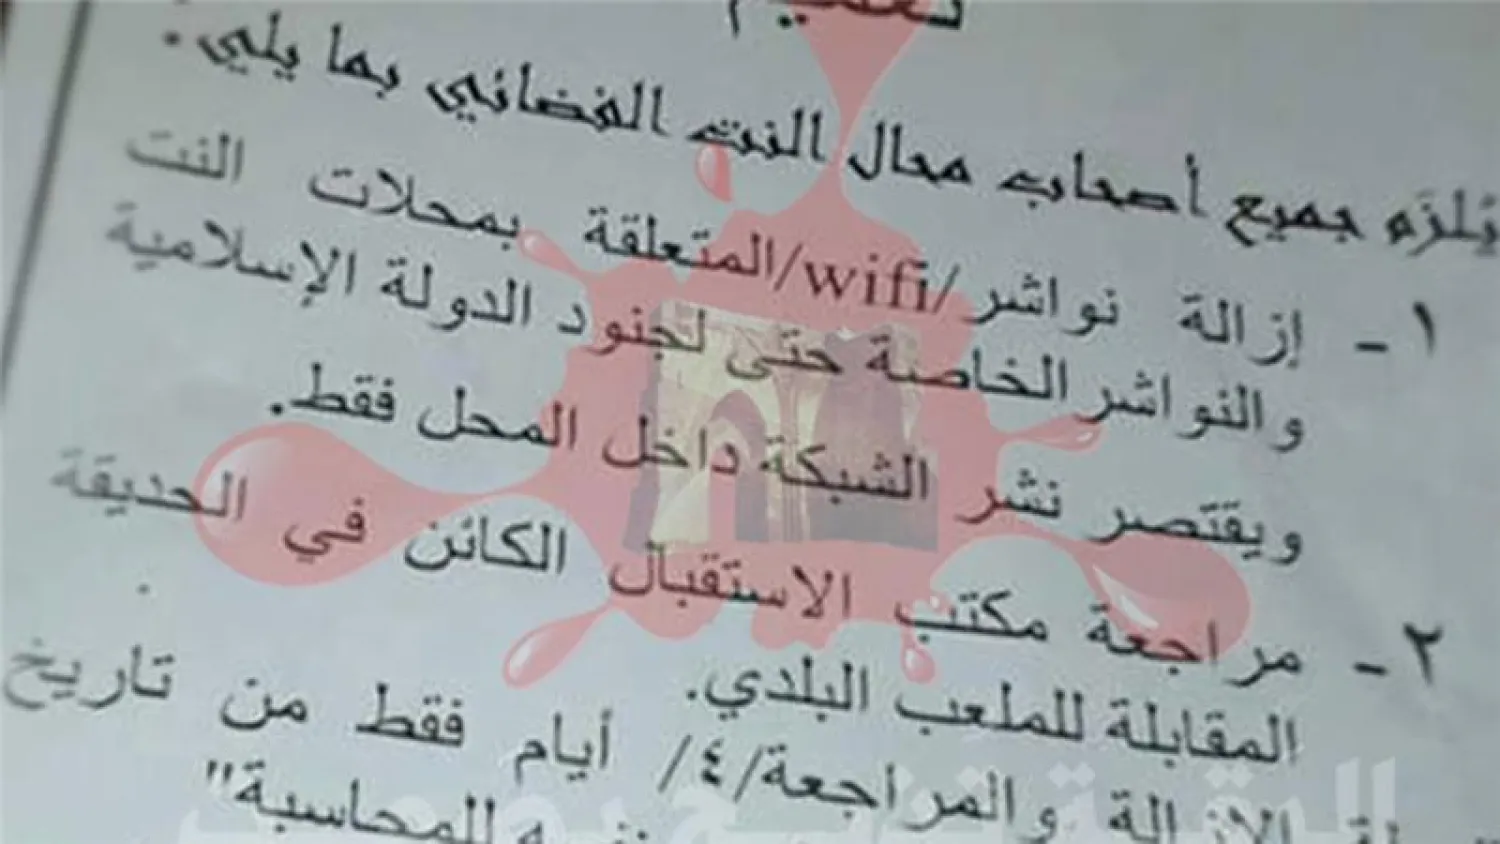 تعميم
يُلزم جميع أصحاب محال النت الفضائي بما يلي:
١- إزالة نواشر /wifi/ المتعلقة بمحلات النت
والنواشر الخاصة حتى لجنود الدولة الإسلامية
ويقتصر نشر الشبكة داخل المحل فقط.
٢- مراجعة مكتب الاستقبال الكائن في الحديقة
المقابلة للملعب البلدي.
الإزالة والمراجعة /٤/ أيام فقط من تاريخ
للمحاسبة"
الرقة تذبح بصمت